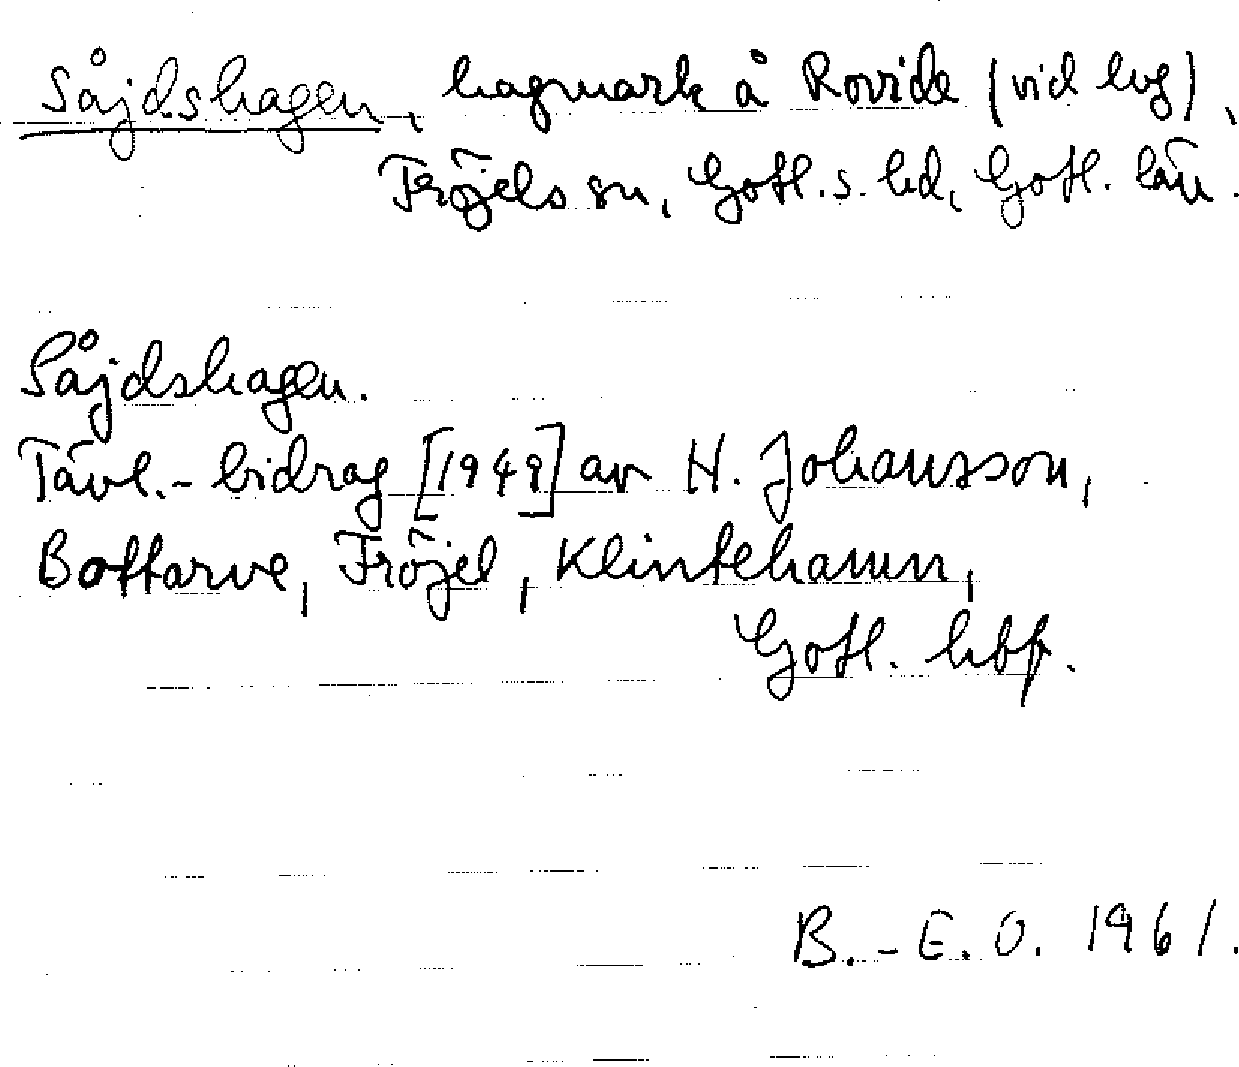 Såjdshagen, hagmark å Rovide (vid lvg),
Fröjels sn, Gotl. s. hd, Gotl. län.
Såjdshagen.
Tävl.-bidrag [1949] av H. Johansson,
Bottarve, Fröjel, Klintehamn,
Gotl. hbf.
B.-E. O. 1961.